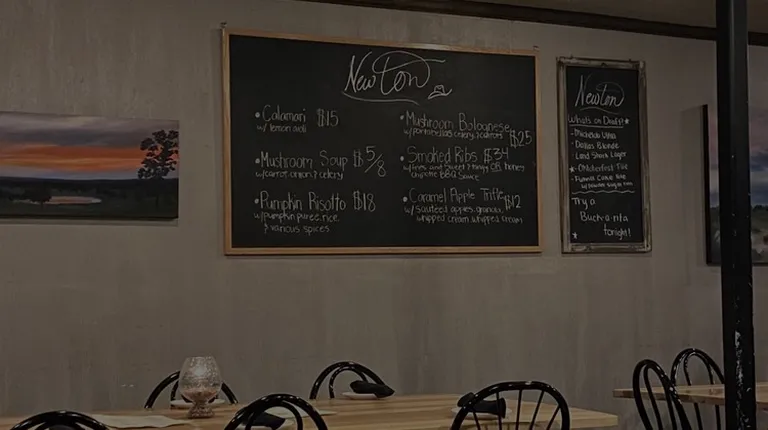 Newton
• Calamari $15
w/ lemon aoli
• Mushroom Soup $5/8
w/ carrot, onion, & celery
• Pumpkin Risotto $18
w/ pumpkin puree, rice,
& various spices
• Mushroom Bolognese $25
w/ portabellas, celery, & carrots
• Smoked Ribs $34
w/ fries and sweet & tangy OR honey
chipotle BBQ sauce
• Caramel Apple Trifle $12
w/ sauteed apples, granola,
whipped cream whipped cream
Newton
What's on Draft?
• Michelob Ultra
• Dallas Blonde
Land Shark Lager
• Oktoberfest
Try a
Buch-a-rita
tonight!